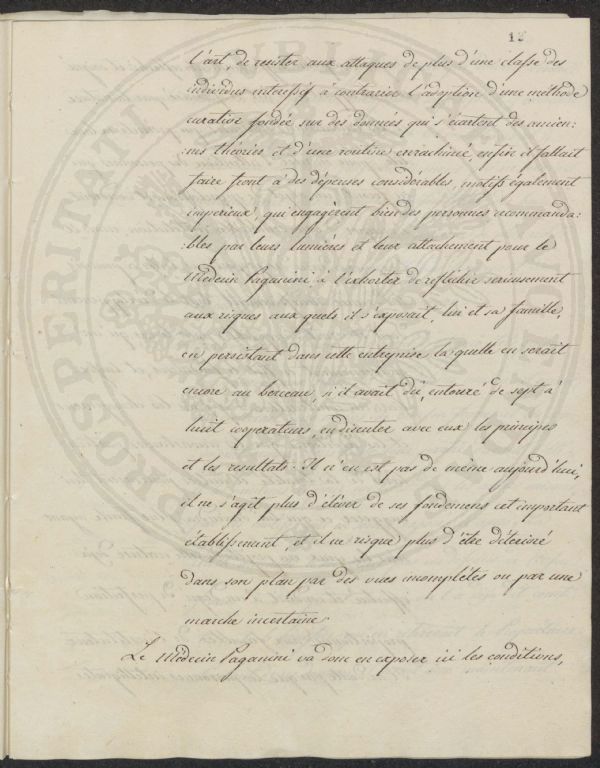 12
l'art, de resister aux attaques de plus d'une classe des
individus interessif à contrarier l'adoption d'une méthode
curative fondée sur des données qui s'écartent des ancien:
:nes théories et d'une routine enracinée, enfin il fallait
faire front à des dépenses considérables, motifs également
imperieux, qui engagèrent bien des personnes recommanda:
:bles par leurs lumières et leur attachement pour le
Médecin Paganini à l'exhorter de reflechir serieusement
aux risques aux quels il s'exposait, lui et sa famille,
en persistant dans cette entreprise la quelle en serait
encore au berceau, si il avait dû, entouré de sept à
huit cooperateurs, en discuter avec eux les principes
et les resultats. Il n'en est pas de même aujourd'hui,
il ne s'agit plus d'élever de ses fondemens cet important
établissement, et il ne risque plus d'être déterioré
dans son plan par des vues incomplétes ou par une
marche incertaine.
Le Médecin Paganini va donc en exposer ici les conditions,
PROSPERITATI